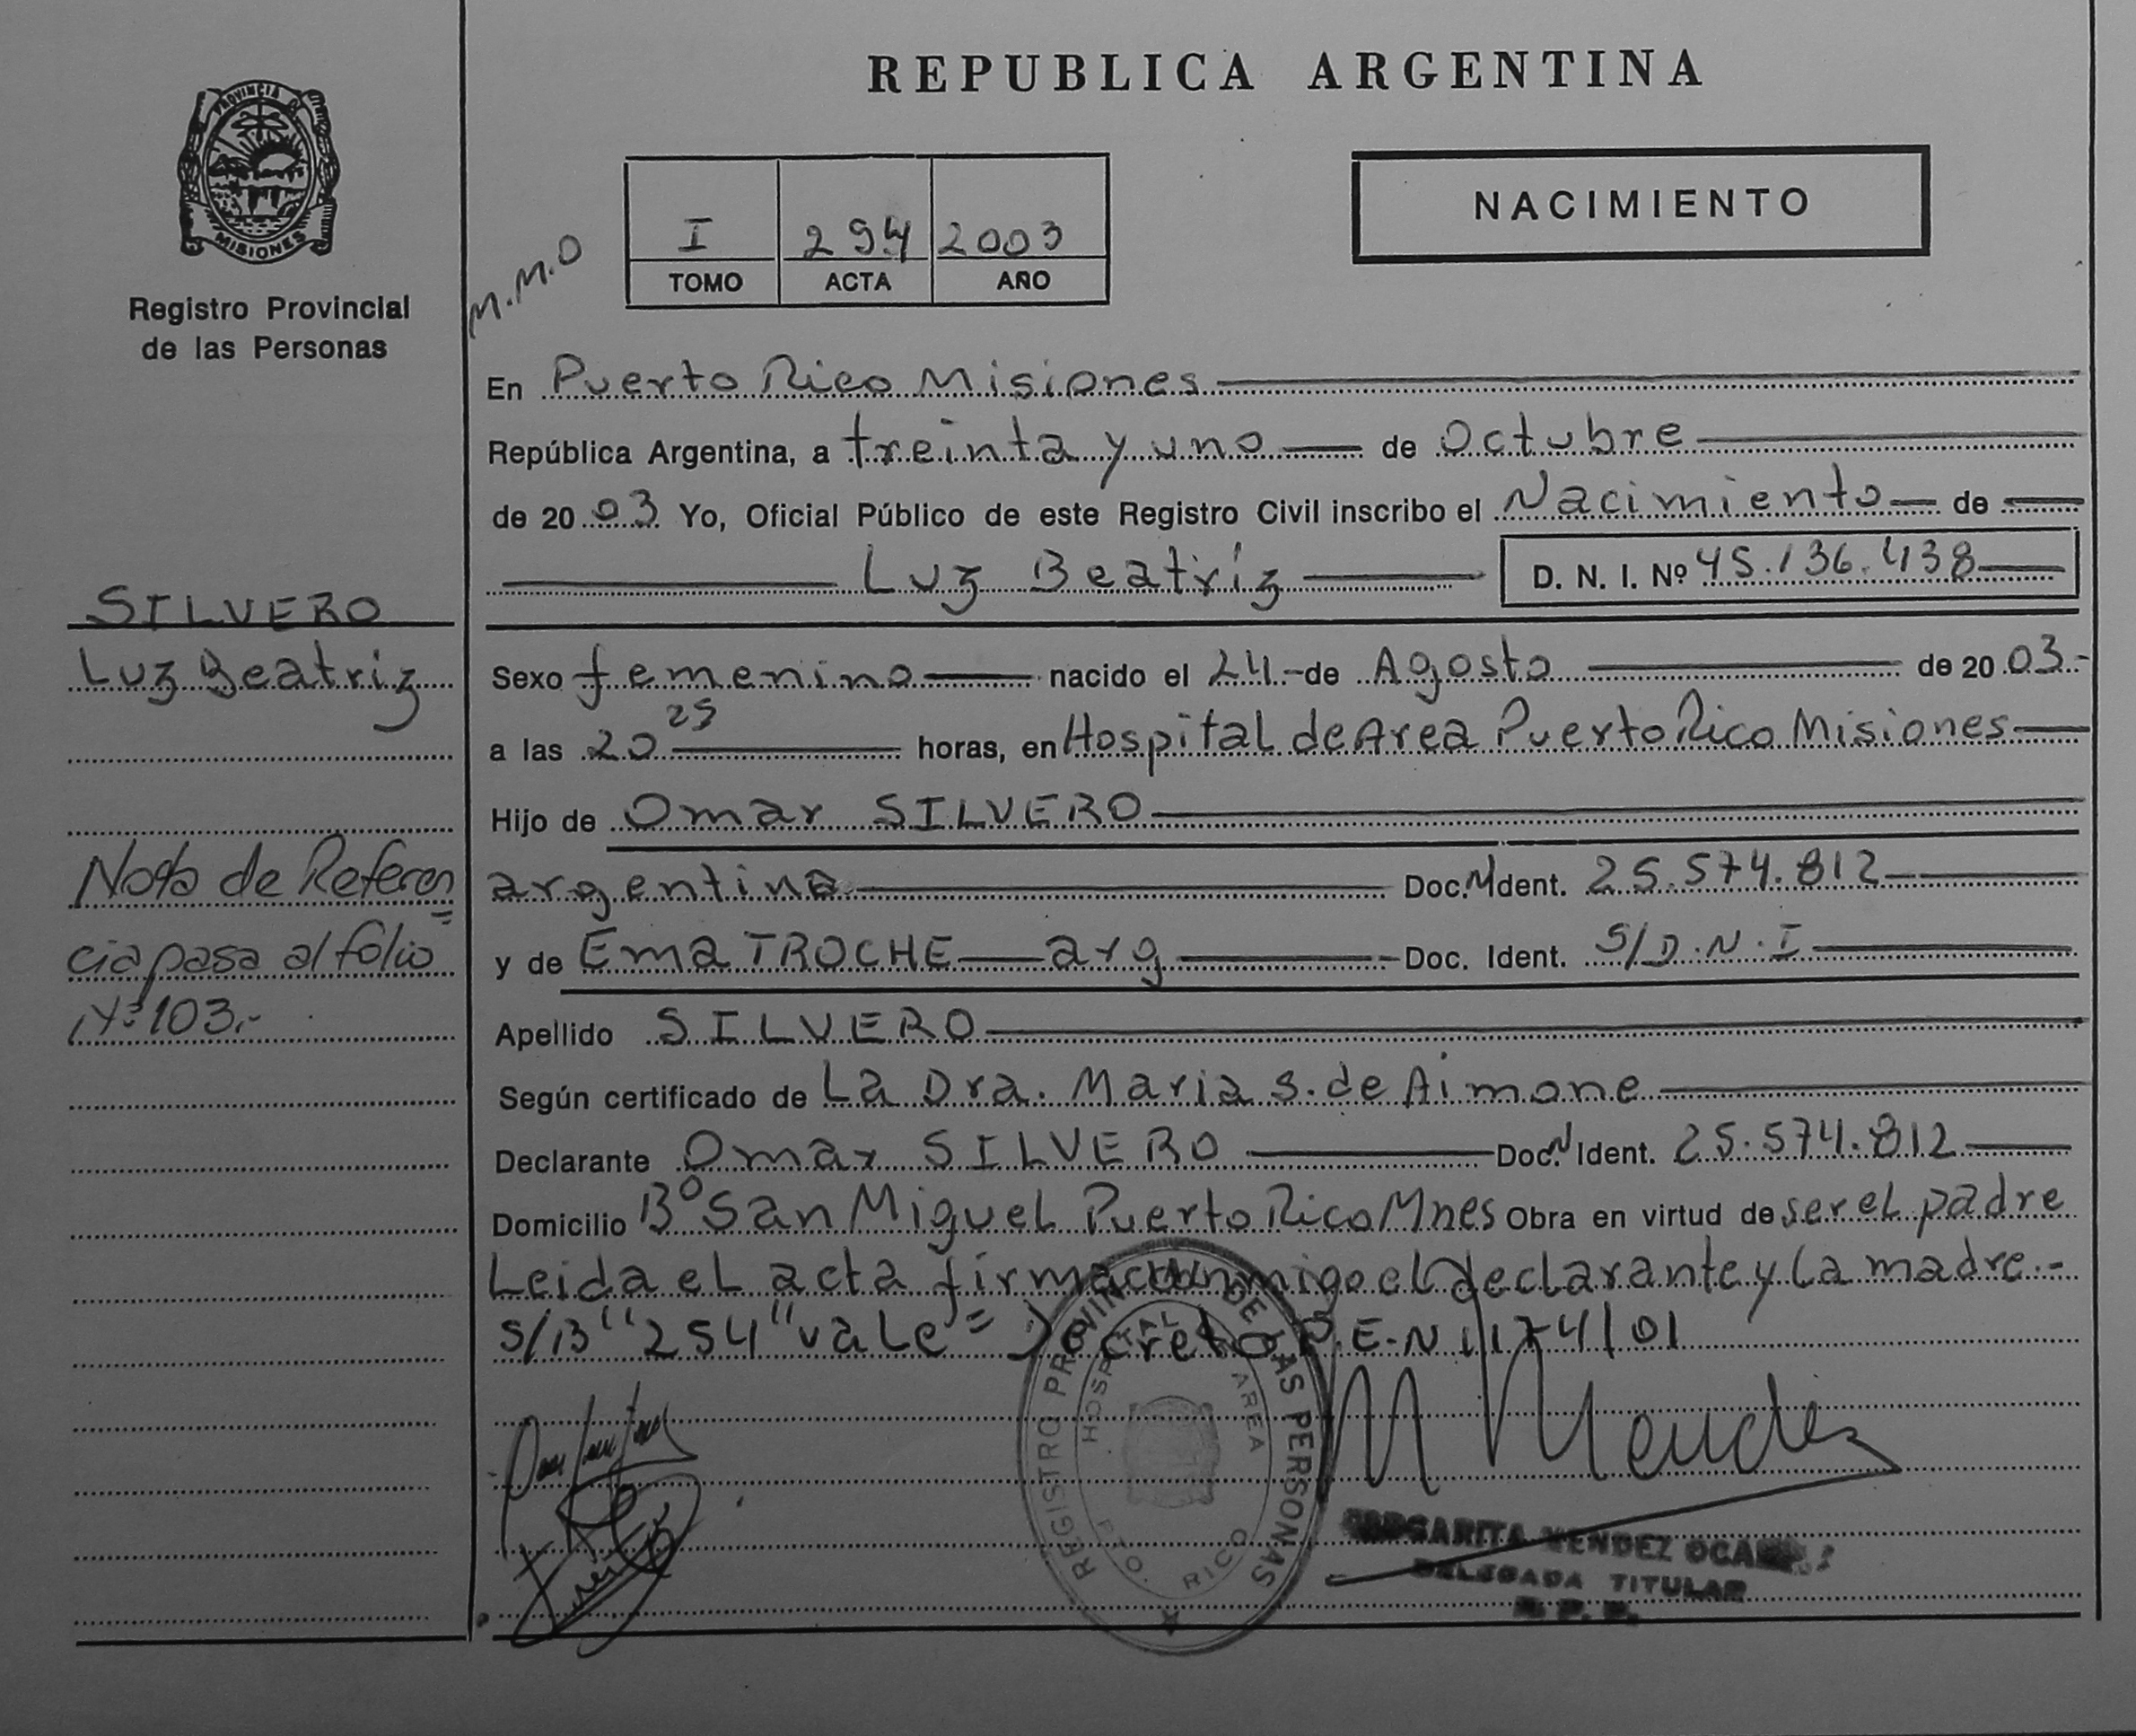 REPUBLICA ARGENTINA
PROVINCIA DE
MISIONES
Registro Provincial
de las Personas
M.M.O
I 294 2003
TOMO ACTA AÑO
NACIMIENTO
En Puerto Rico Misiones
República Argentina, a treinta y uno de Octubre
de 2003 Yo, Oficial Público de este Registro Civil inscribo el Nacimiento de
Luz Beatriz D. N. I. Nº 45.136.438
SILVERO
Luz Beatriz
Sexo femenino nacido el 24 de Agosto de 2003.-
a las 20 25 horas, en Hospital de Area Puerto Rico Misiones
Hijo de Omar SILVERO
argentina Doc. N Ident. 25.574.812
y de Ema TROCHE arg Doc. Ident. S/D.N.I
Apellido SILVERO
Según certificado de La Dra. Maria S. de Aimone
Declarante Omar SILVERO Doc. N Ident. 25.574.812
Domicilio Bº San Miguel Puerto Rico Mnes Obra en virtud de ser el padre
Leida el acta firma conmigo el declarante y la madre.-
S/B "254" vale = Decreto P.E.N 1174/01
Nota de Referen=
cia pasa al folio
Nº 103.-
REGISTRO PROVINCIAL DE LAS PERSONAS
HOSPITAL AREA
PTO. RICO
M Mendez
MARGARITA MENDEZ
DELEGADA TITULAR
R. P. P.